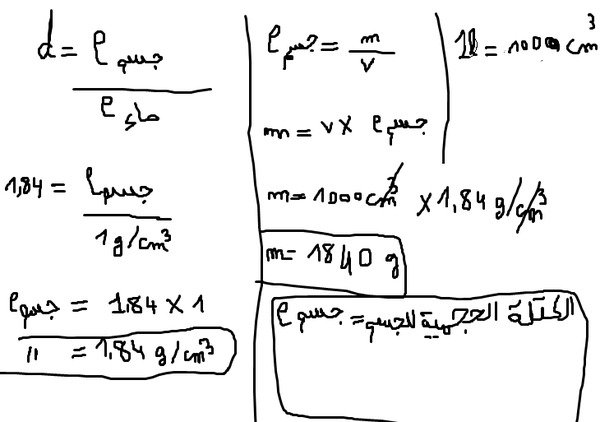 d = ρ جسم
ρ ماء
1,84 = ρ جسم
1 g/cm³
ρ جسم = 1.84 × 1
〃 = 1,84 g/cm³
ρ جسم = m
v
m = v × ρ جسم
m = 1000 cm³ × 1,84 g/cm³
m = 1840 g
1l = 1000 cm³
الكتلة الحجمية للجسم = ρ جسم